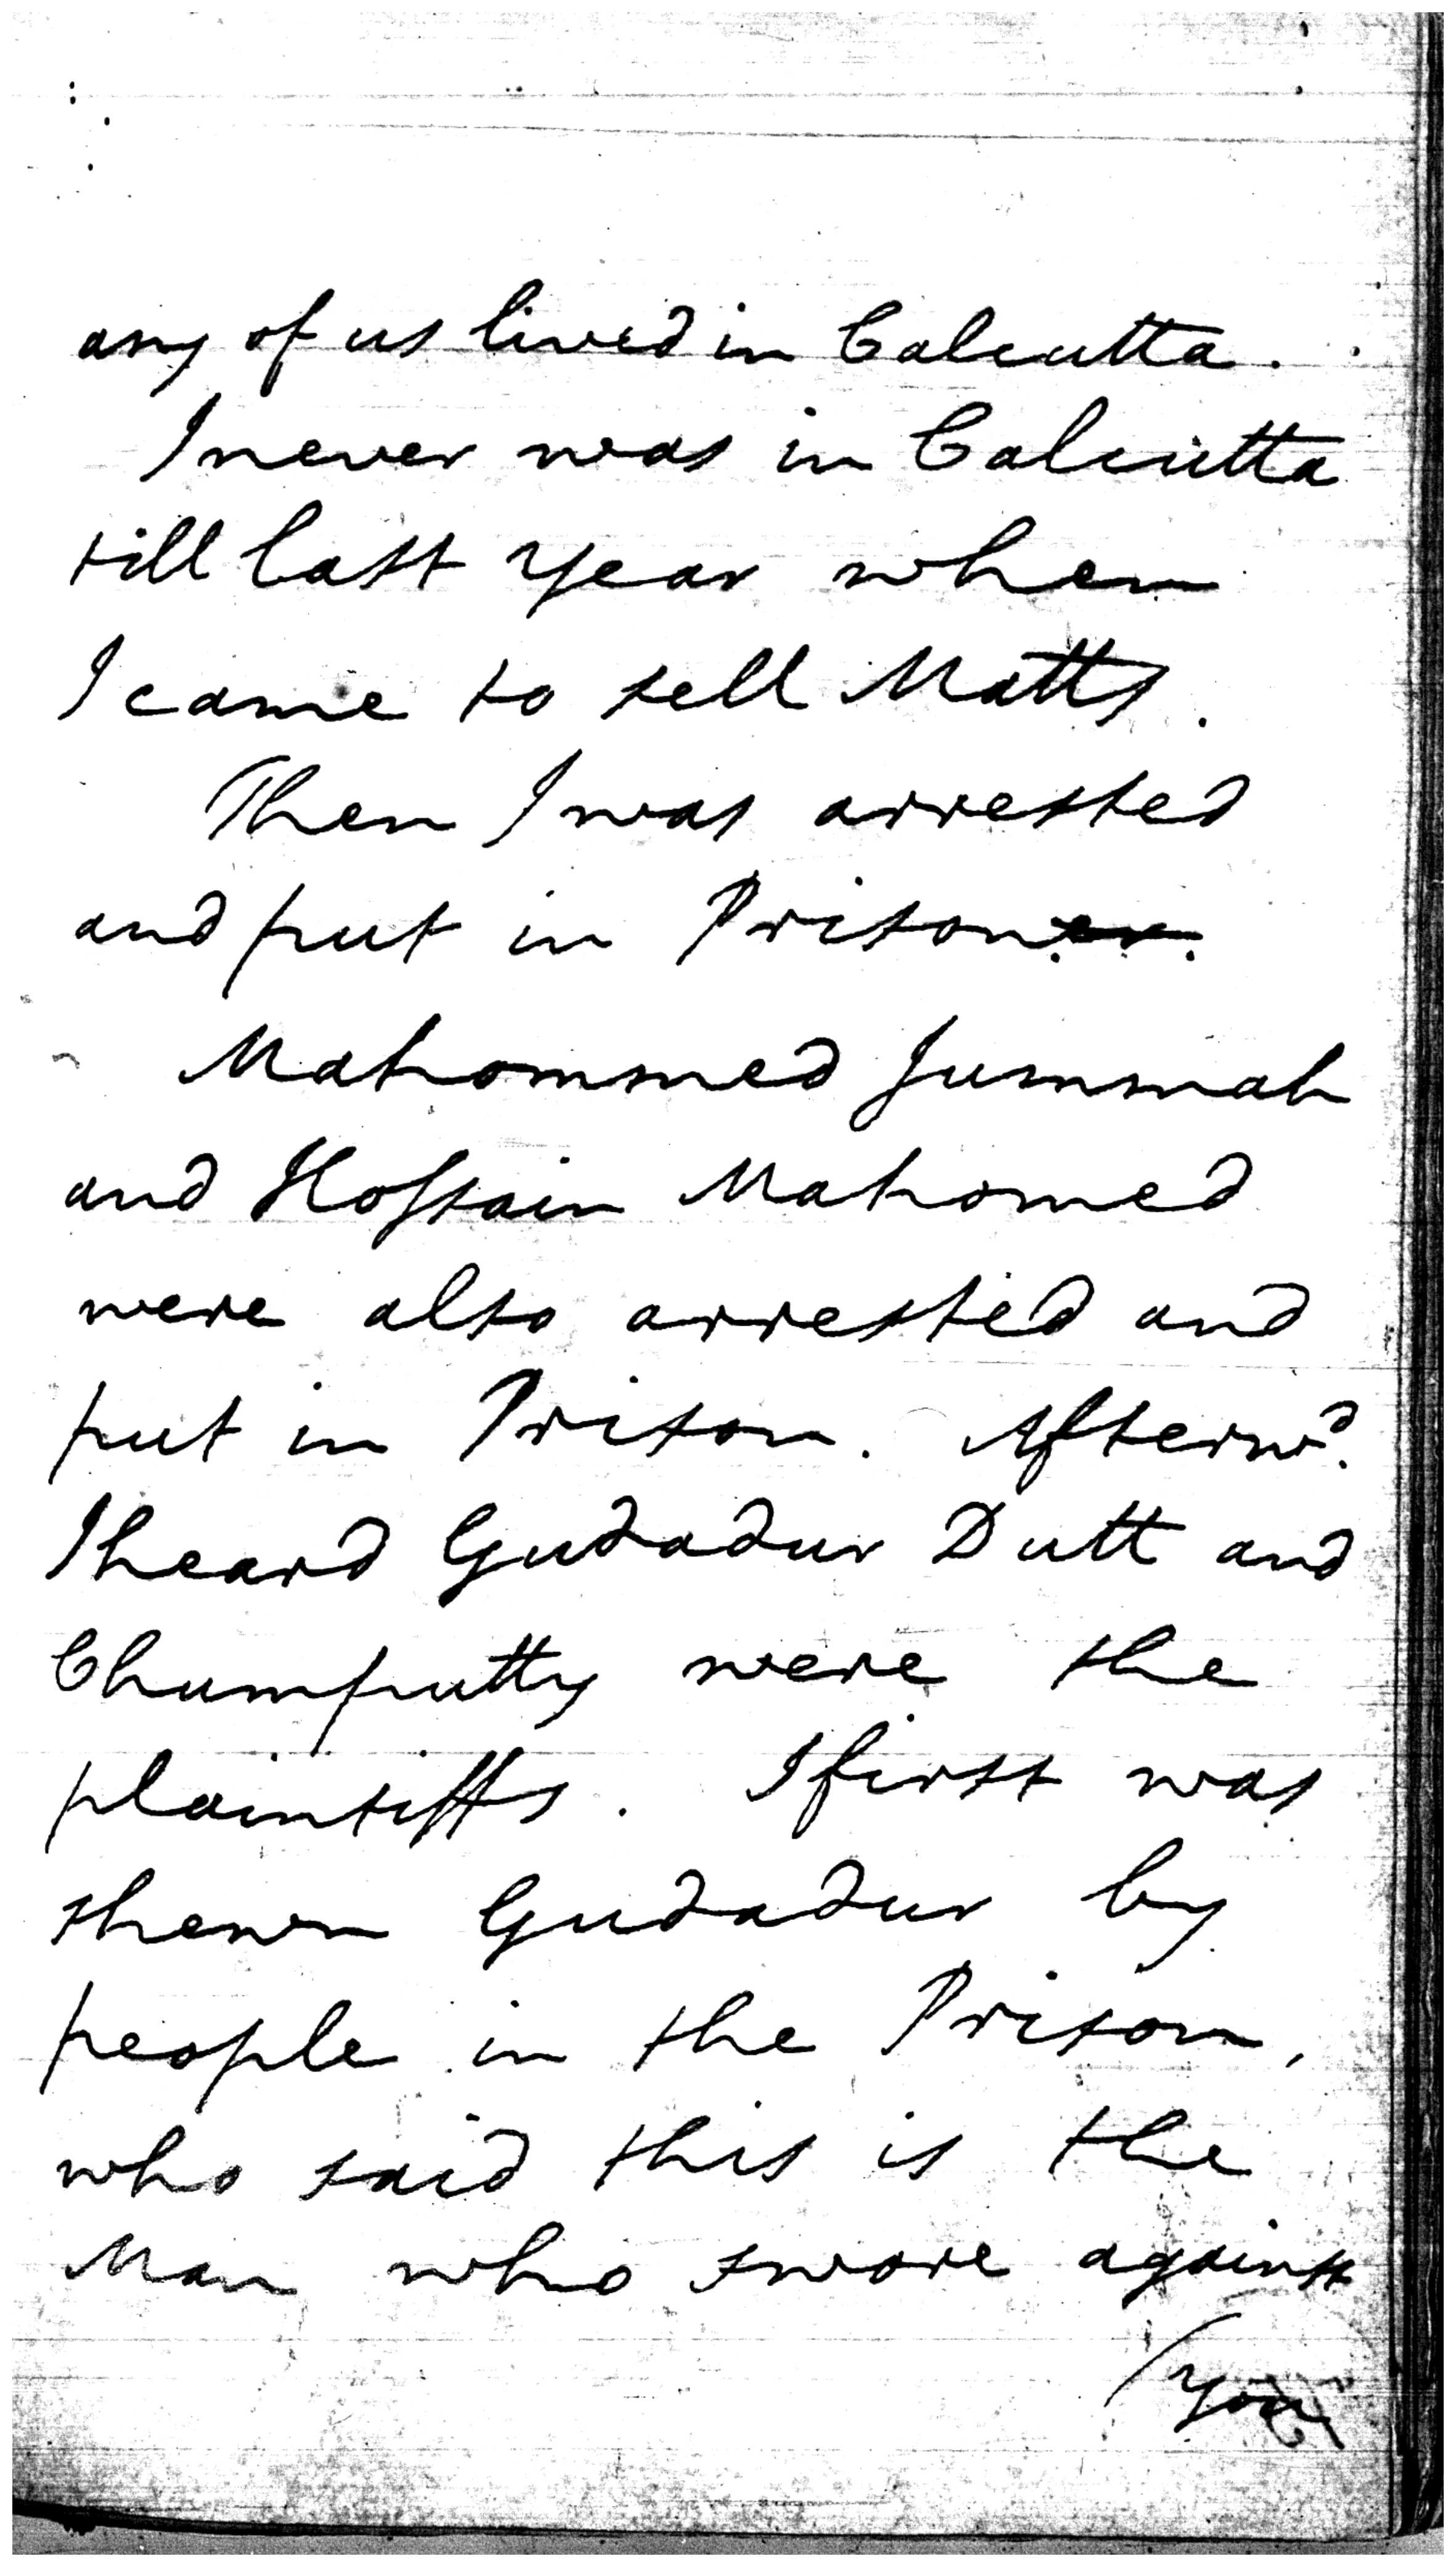 any of us lived in Calcutta.
I never was in Calcutta
till last year when
I came to sell Matts.
Then I was arrested
and put in Prisoner.
Mahommed Jummah
and Hossain Mahomed
were also arrested and
put in Prison. Afterwd.
I heard Gudadur Dutt and
Chumputty were the
plaintiffs. I first was
shewn Gudadur by
people in the Prison,
who said this is the
Man who swore against
(you